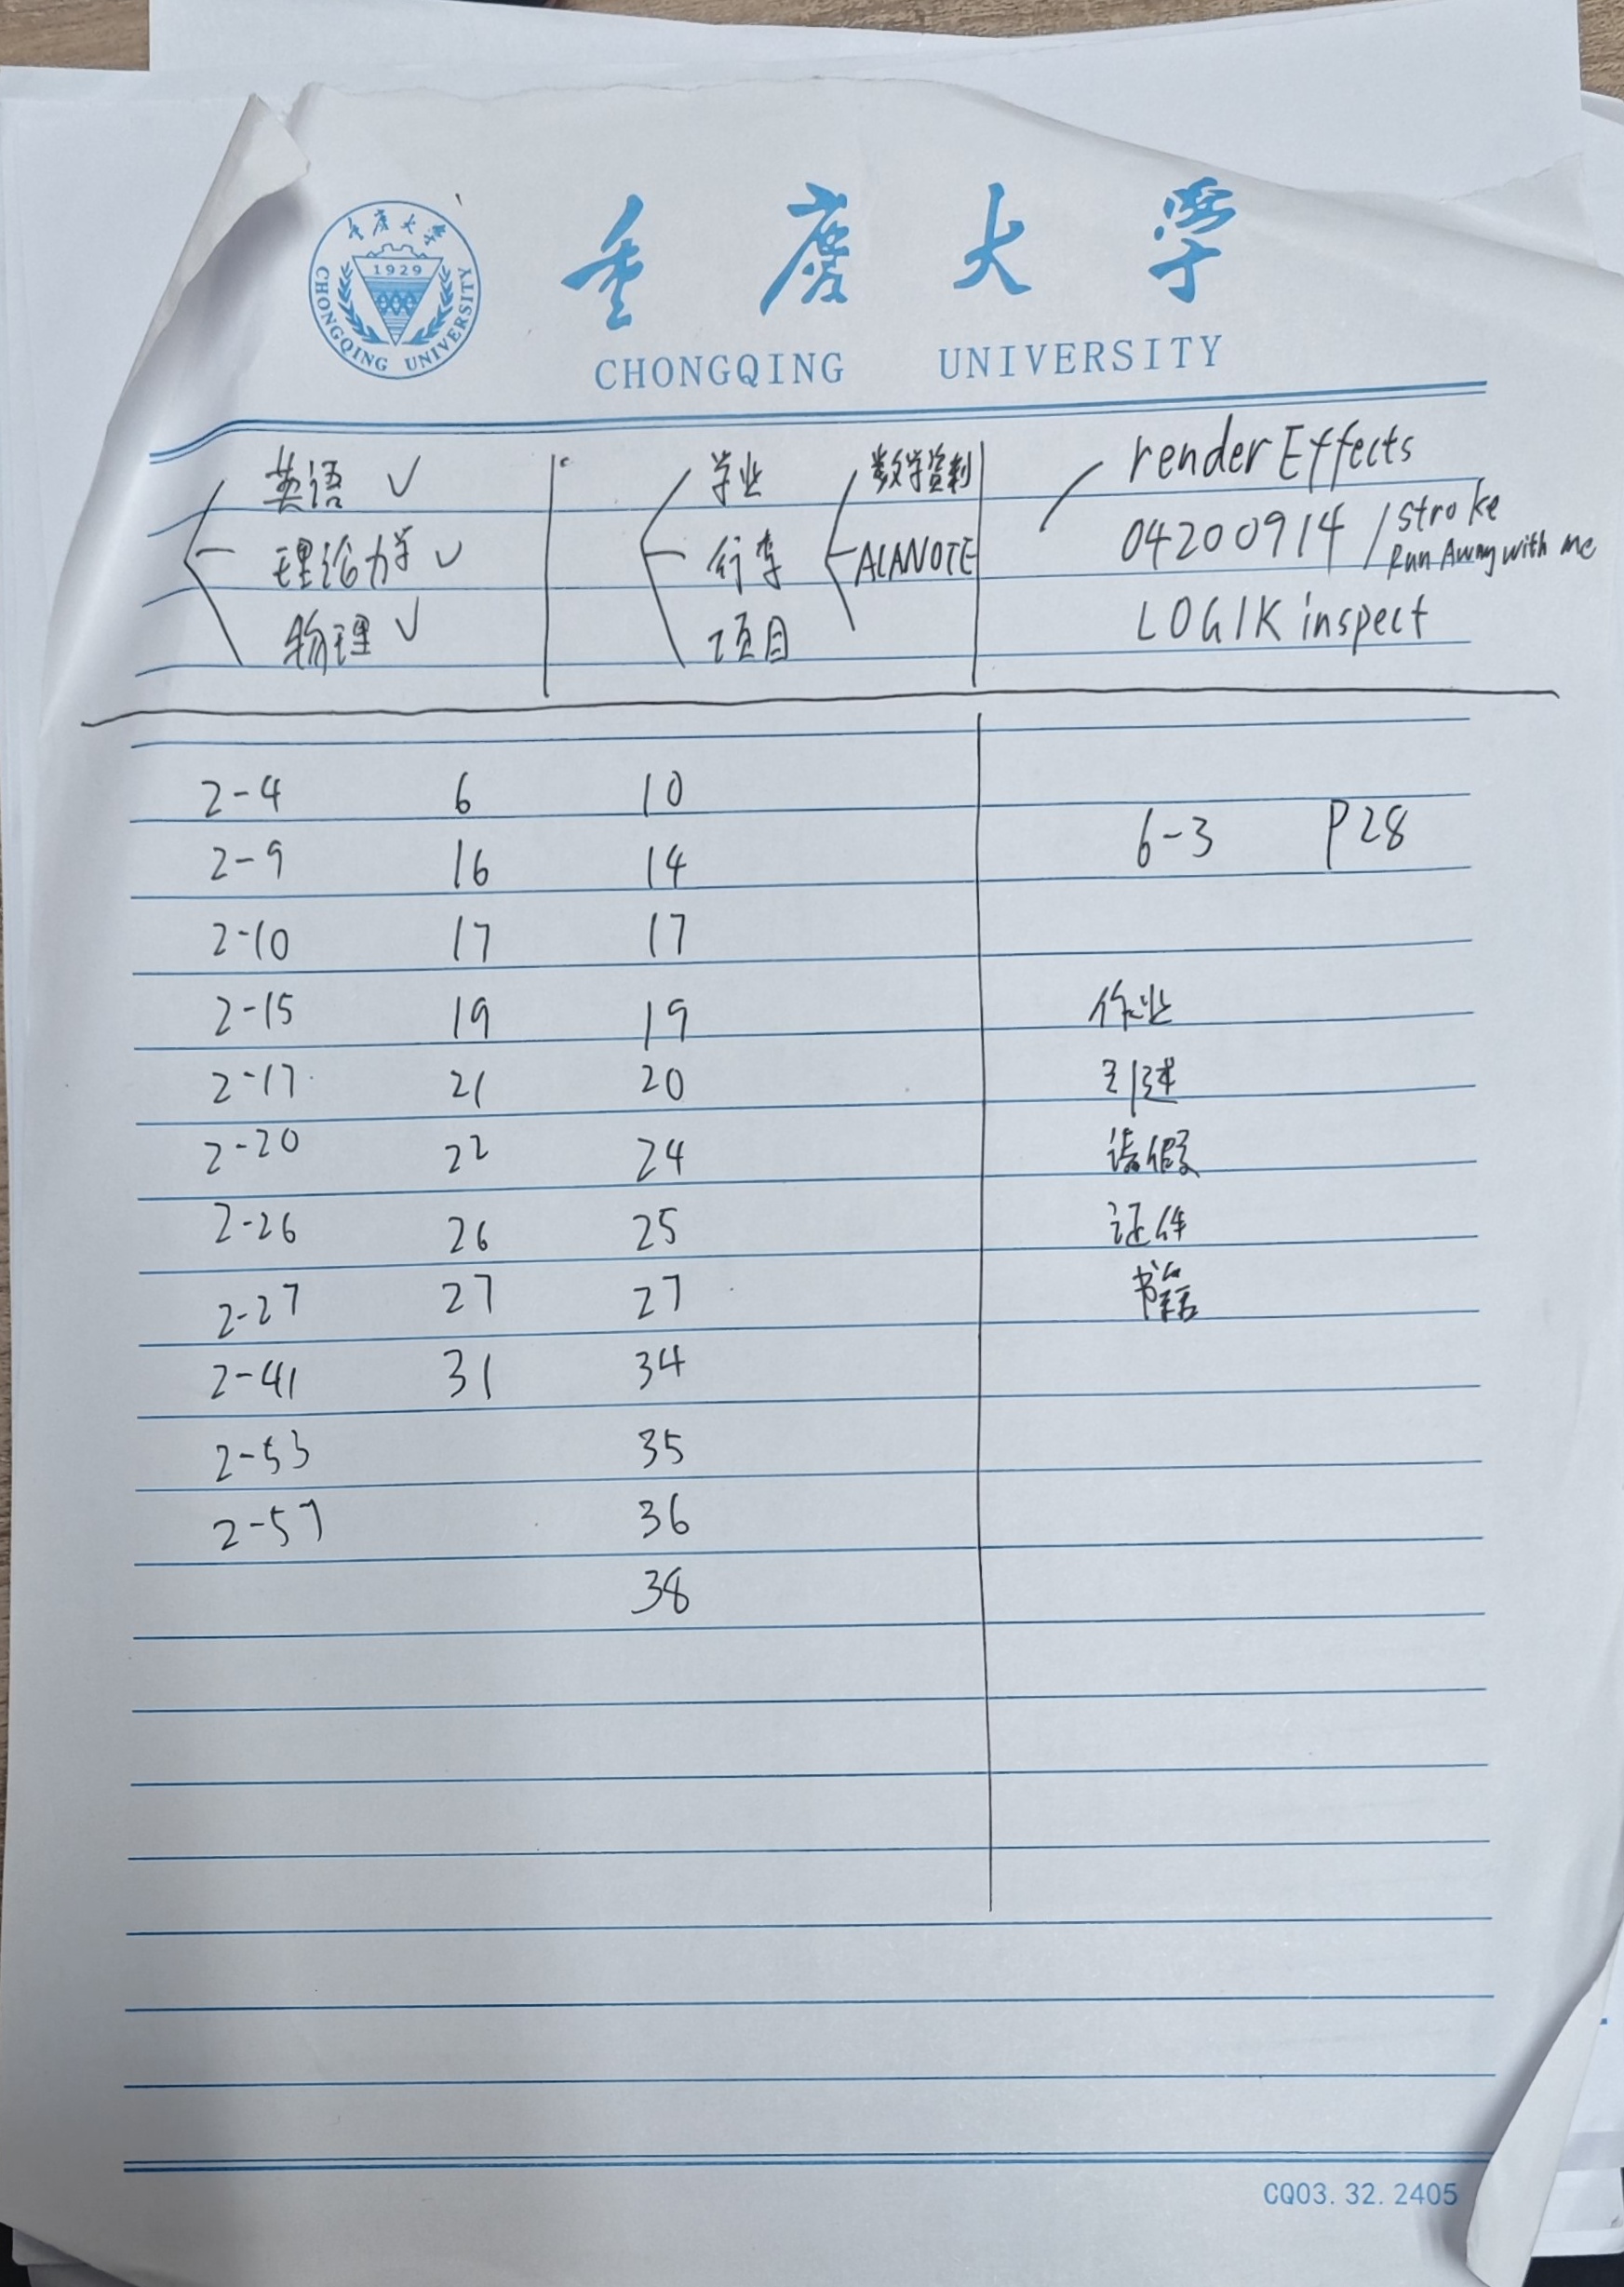 重庆大学
1929
CHONGQING UNIVERSITY
重庆大学
CHONGQING UNIVERSITY
英语 ✓
理论力学 ✓
物理 ✓
学业
行李
项目
数学资料
ALANOTE
render Effects
04200914 / Stroke
Run Away with me
LOGIK inspect
2-4 6 10
2-9 16 14
2-10 17 17
2-15 19 19
2-17 21 20
2-20 22 24
2-26 26 25
2-27 27 27
2-41 31 34
2-53 35
2-57 36
38
6-3 P28
作业
引述
请假
证件
书籍
CQ03.32.2405